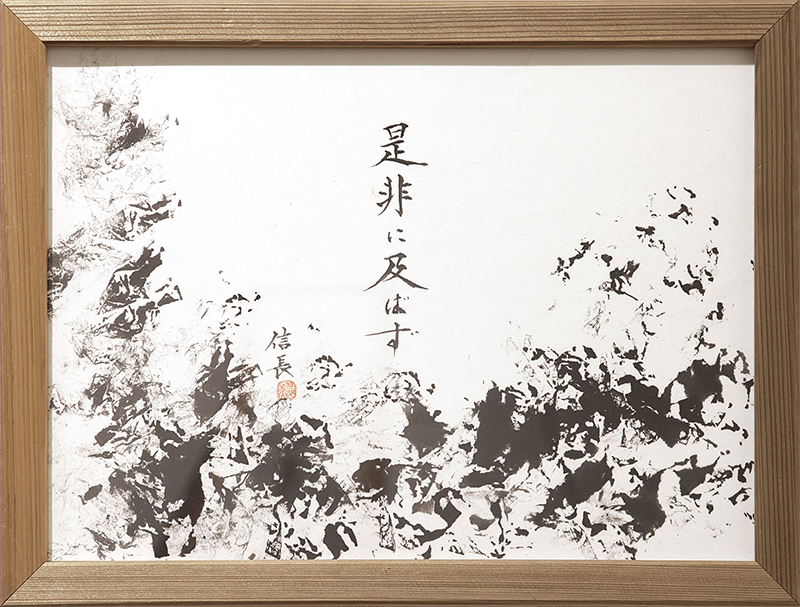 是非に及ばず
信長